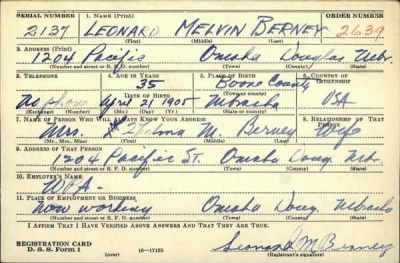 SERIAL NUMBER 1. NAME (Print) ORDER NUMBER
2137 LEONARD MELVIN BERNEY 2639
(First) (Middle) (Last)
2. ADDRESS (Print)
1204 Pacific Omaha Douglas Nebr.
(Number and street or R. F. D. number) (Town) (County) (State)
3. TELEPHONE 4. AGE IN YEARS 5. PLACE OF BIRTH 6. COUNTRY OF CITIZENSHIP
35 Boone County
DATE OF BIRTH (Town or county)
No phone April 21 1905 Nebraska USA
(Exchange) (Number) (Mo.) (Day) (Yr.) (State or country)
7. NAME OF PERSON WHO WILL ALWAYS KNOW YOUR ADDRESS 8. RELATIONSHIP OF THAT PERSON
Mrs. Thelma M. Berney Wife
(Mr., Mrs., Miss) (First) (Middle) (Last)
9. ADDRESS OF THAT PERSON
1204 Pacific St. Omaha Doug. Neb.
(Number and street or R. F. D. number) (Town) (County) (State)
10. EMPLOYER'S NAME
W.P.A.
11. PLACE OF EMPLOYMENT OR BUSINESS
now working Omaha Doug. Nebraska
(Number and street or R. F. D. number) (Town) (County) (State)
I AFFIRM THAT I HAVE VERIFIED ABOVE ANSWERS AND THAT THEY ARE TRUE.
REGISTRATION CARD
D. S. S. Form 1 (over) 16-17105 Leonard M Berney
(Registrant's signature)